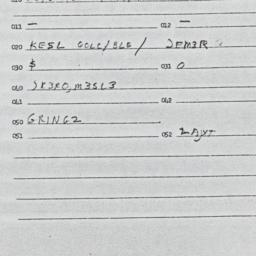 011 — 012 —
020 KESL COLL/BLE/ JEM3R
030 $ 031 0
040 JX3RO,M3SL3
041 042
050 GRINGZ
051 052 LAJYT